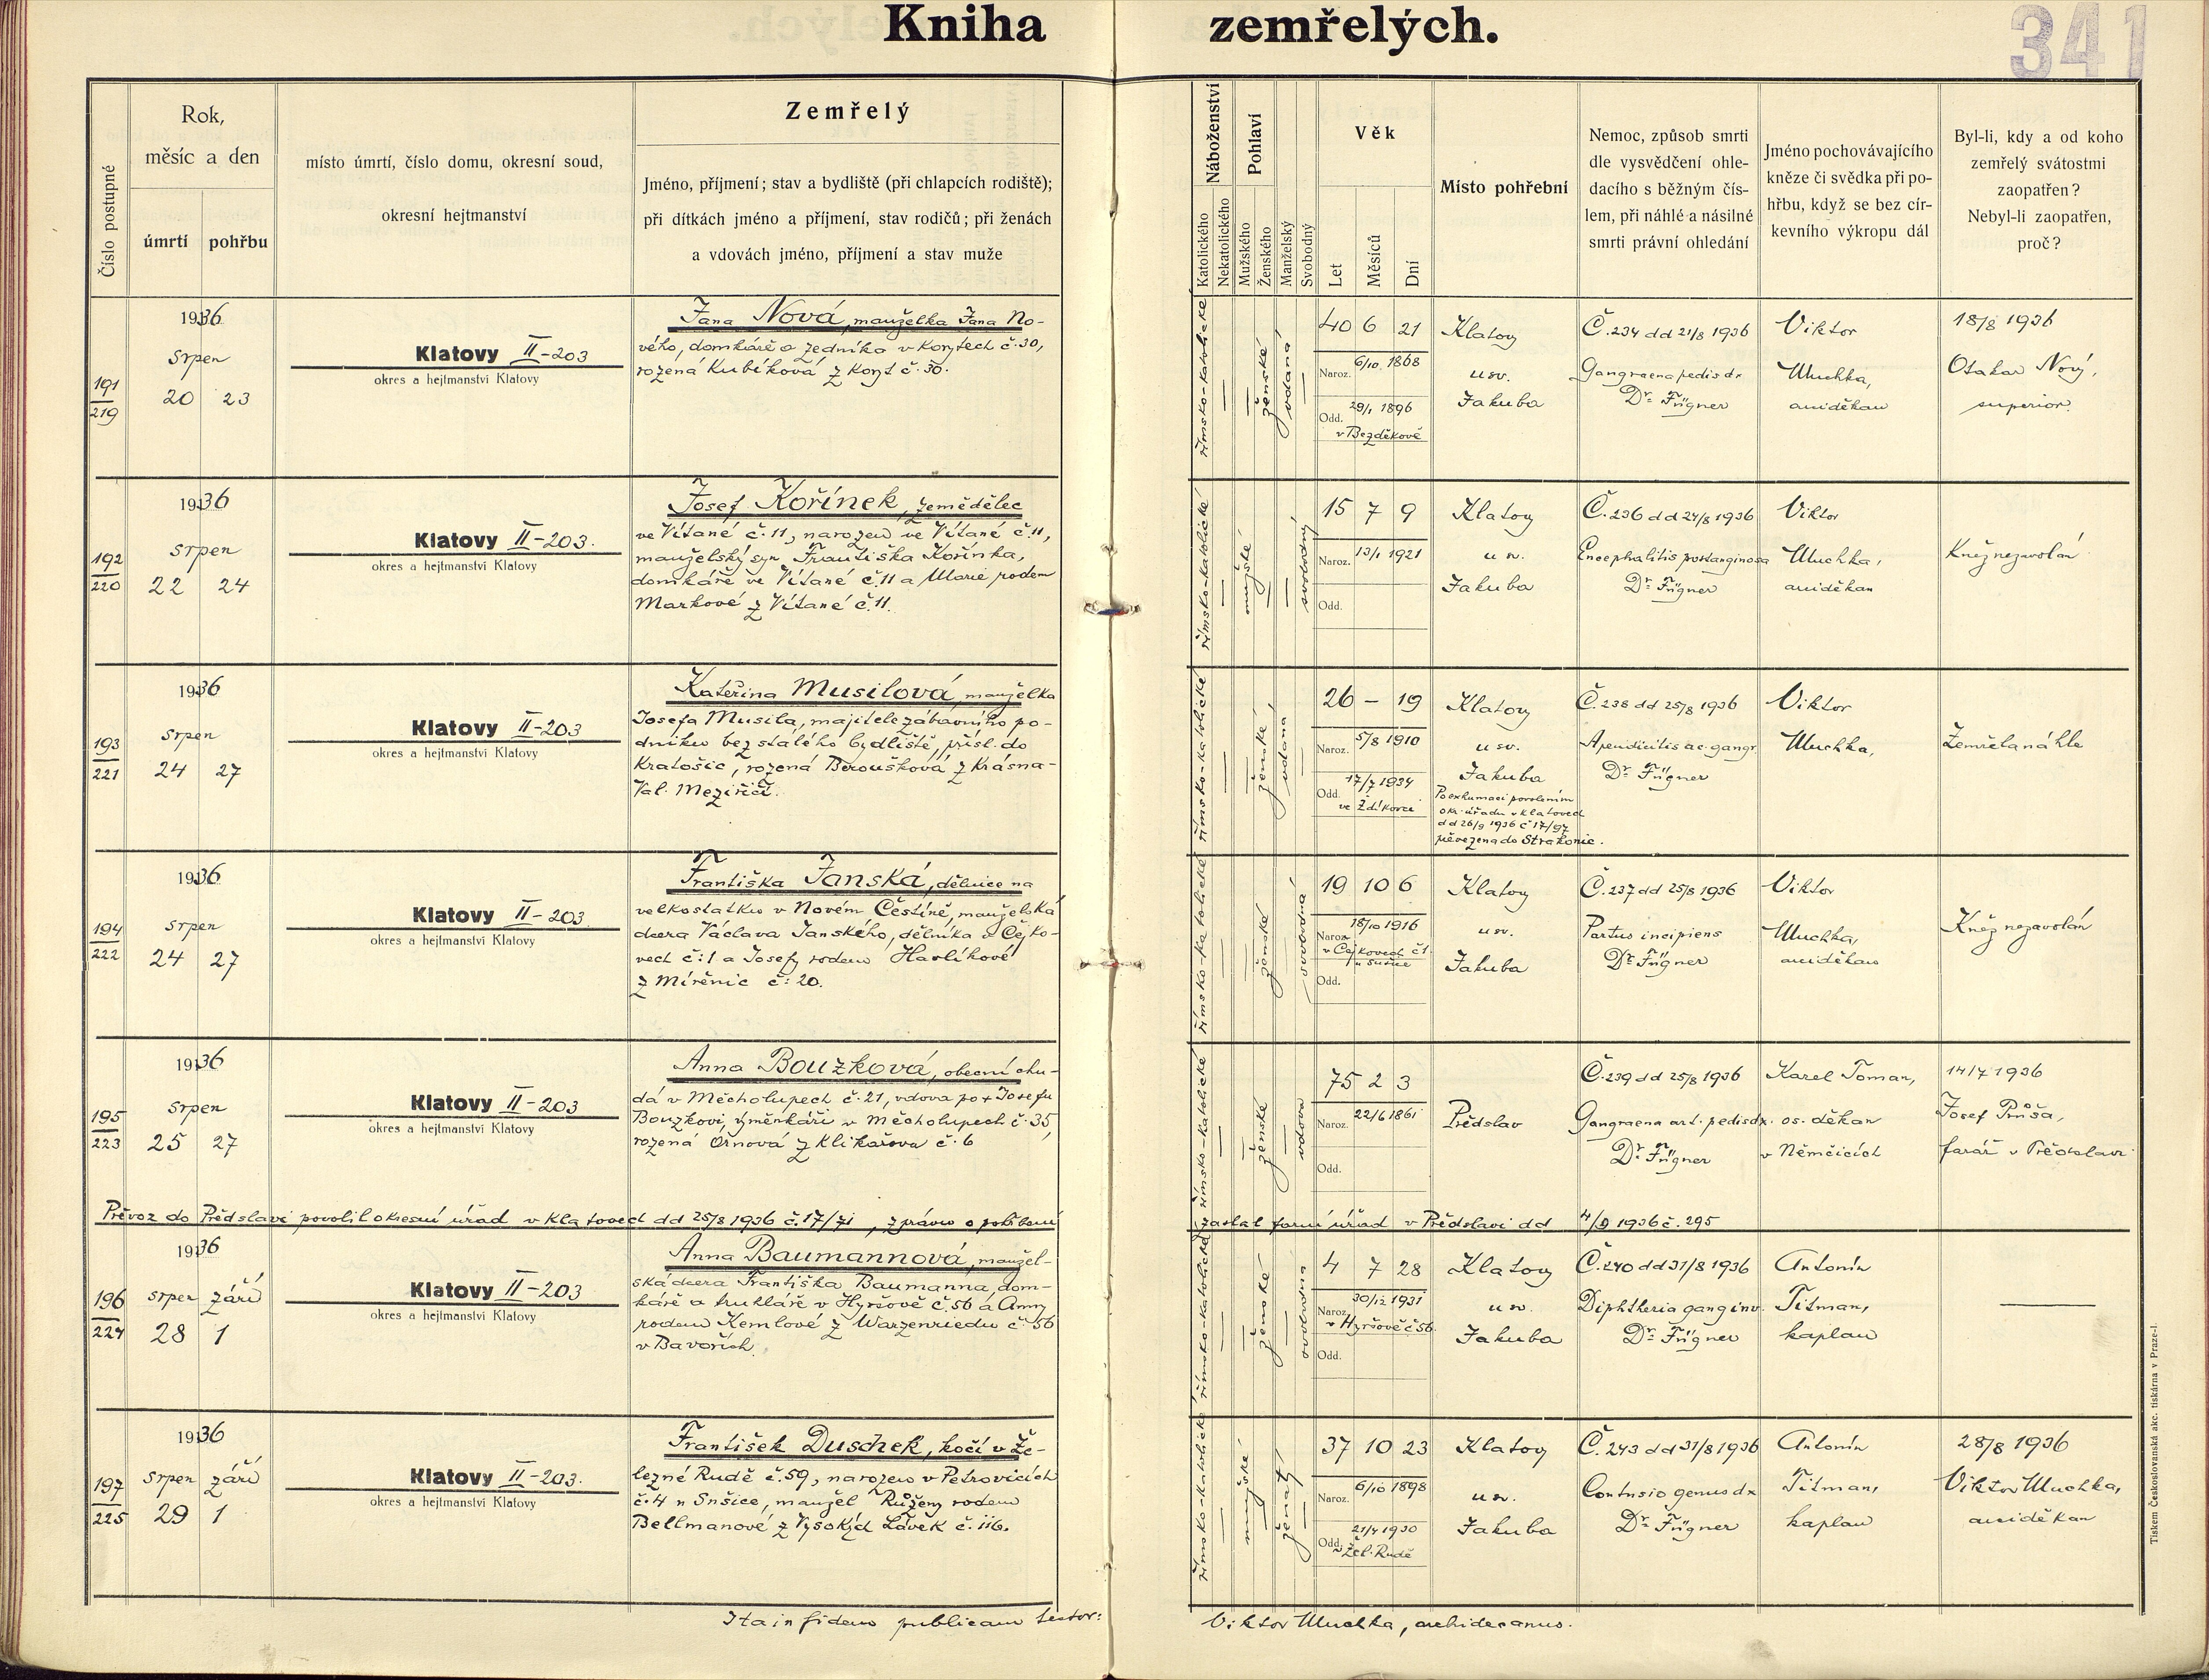 Kniha zemřelých.
341
Číslo postupné
Rok,
měsíc a den
úmrtí
pohřbu
místo úmrtí, číslo domu, okresní soud,
okresní hejtmanství
Zemřelý
Jméno, příjmení; stav a bydliště (při chlapcích rodiště);
při dítkách jméno a příjmení, stav rodičů; při ženách
a vdovách jméno, příjmení a stav muže
Náboženství
Katolického
Nekatolického
Pohlaví
Mužského
Ženského
Manželský
Svobodný
Věk
Let
Měsíců
Dní
Místo pohřební
Nemoc, způsob smrti
dle vysvědčení ohle-
dacího s běžným čís-
lem, při náhlé a násilné
smrti právní ohledání
Jméno pochovávajícího
kněze či svědka při po-
hřbu, když se bez cír-
kevního výkropu dál
Byl-li, kdy a od koho
zemřelý svátostmi
zaopatřen?
Nebyl-li zaopatřen,
proč?
191
219
1936
srpen
20 23
Klatovy II-203
okres a hejtmanství Klatovy
Jana Nová, manželka Jana No-
vého, domkáře a zedníka v Korytech č. 30,
rozená Kubíková z Koryt č. 30.
římsko-katolické
ženské
vdaná
40 6 21
Naroz. 6/10 1868
Odd. 29/1 1896
v Bezděkově
Klatovy
u sv.
Jakuba
Č. 234 dd 21/8 1936
Gangraena pedis dx
Dr. Fügner
Viktor
Muchka,
arciděkan
18/8 1936
Otakar Nový,
superior.
192
220
1936
srpen
22 24
Klatovy II-203.
okres a hejtmanství Klatovy
Josef Kořínek, zemědělec
ve Vítané č. 11, narozen ve Vítané č. 11,
manželský syn Františka Kořínka,
domkáře ve Vítané č. 11 a Marie rodem
Markové z Vítané č. 11.
římsko-katolické
mužské
svobodný
15 7 9
Naroz. 13/1 1921
Odd.
Klatovy
u sv.
Jakuba
Č. 236 dd 24/8 1936
Encephalitis postanginosa
Dr. Fügner
Viktor
Muchka,
arciděkan
Kněz nezavolán
193
221
1936
srpen
24 27
Klatovy II-203
okres a hejtmanství Klatovy
Kateřina Musilová, manželka
Josefa Musila, majitele zábavního po-
dniku bez stálého bydliště, přísl. do
Kratošic, rozená Beroušková z Krásna-
Val. Meziříčí.
římsko-katolické
ženské
vdaná
26 – 19
Naroz. 5/8 1910
Odd. 17/7 1934
ve Zdíkovci
Klatovy
u sv.
Jakuba
Po exhumaci povolením
okr. úřadu v Klatovech
dd 26/9 1936 č 17/97
převezena do Strakonic.
Č. 238 dd 25/8 1936
Apendicitis ac. gangr.
Dr. Fügner
Viktor
Muchka,
Zemřela náhle
194
222
1936
srpen
24 27
Klatovy II-203
okres a hejtmanství Klatovy
Františka Janská, dělnice na
velkostatku v Novém Čestíně, manželská
dcera Václava Janského, dělníka v Čejko-
vech č: 1 a Josefy rodem Havlíkové
z Mířenic č: 20.
římsko-katolické
ženské
svobodná
19 10 6
Naroz. 18/10 1916
v Čejkovech č 1
u Sušice
Odd.
Klatovy
u sv.
Jakuba
Č. 237 dd 25/8 1936
Partus incipiens
Dr. Fügner
Viktor
Muchka,
arciděkan
Kněz nezavolán
195
223
1936
srpen
25 27
Klatovy II-203
okres a hejtmanství Klatovy
Anna Bouzková, obecní chu-
dá v Měcholupech č. 21, vdova po + Josefu
Bouzkovi, výměnkáři v Měcholupech č. 35,
rozená Ornová z Klikařova č. 6
římsko-katolické
ženské
vdova
75 2 3
Naroz. 22/6 1861
Odd.
Předslav
Č. 239 dd 25/8 1936
Gangraena art. pedis dx.
Dr. Fügner
Karel Toman,
os. děkan
v Němčicích
14/7 1936
Josef Průša,
farář v Předslavi
Převoz do Předslavi povolil okresní úřad v Klatovech dd 25/8 1936 č. 17/71, zprávu o pohřbení zaslal farní úřad v Předslavi dd 4/9 1936 č. 295
196
224
1936
srpen září
28 1
Klatovy II-203
okres a hejtmanství Klatovy
Anna Baumannová, manžel-
ská dcera Františka Baumanna, dom-
káře a truhláře v Hyršově č. 56 a Anny
rodem Kemlové z Warzenriedu č. 56
v Bavořích.
římsko-katolické
ženské
svobodná
4 7 28
Naroz. 30/12 1931
v Hyršově č 56.
Odd.
Klatovy
u sv.
Jakuba
Č. 240 dd 31/8 1936
Diphtheria gang inv.
Dr. Fügner
Antonín
Titman,
kaplan
197
225
1936
srpen září
29 1
Klatovy II-203.
okres a hejtmanství Klatovy
František Duschek, kočí v Že-
lezné Rudě č. 59, narozen v Petrovicích
č. 4 u Sušice, manžel Růženy rodem
Bellmanové z Vysokých Lávek č. 116.
římsko-katolické
mužské
ženatý
37 10 23
Naroz. 6/10 1898
Odd. 21/4 1930
v Žel. Rudě
Klatovy
u sv.
Jakuba
Č. 243 dd 31/8 1936
Contusio genus dx
Dr. Fügner
Antonín
Titman,
kaplan
28/8 1936
Viktor Muchka,
arciděkan
Ita in fidem publicam testor: Viktor Muchka, archidecanus.
Tiskem Československá akc. tiskárna v Praze-I.